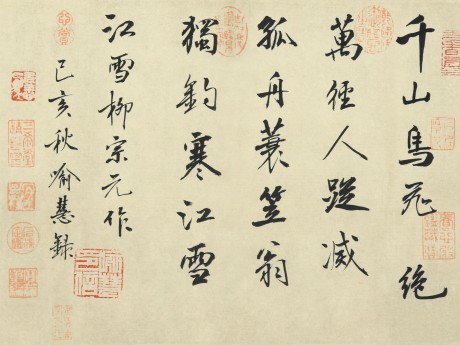 千山鳥飛絕
萬徑人蹤滅
孤舟蓑笠翁
獨釣寒江雪
江雪柳宗元作
己亥秋喻慧録